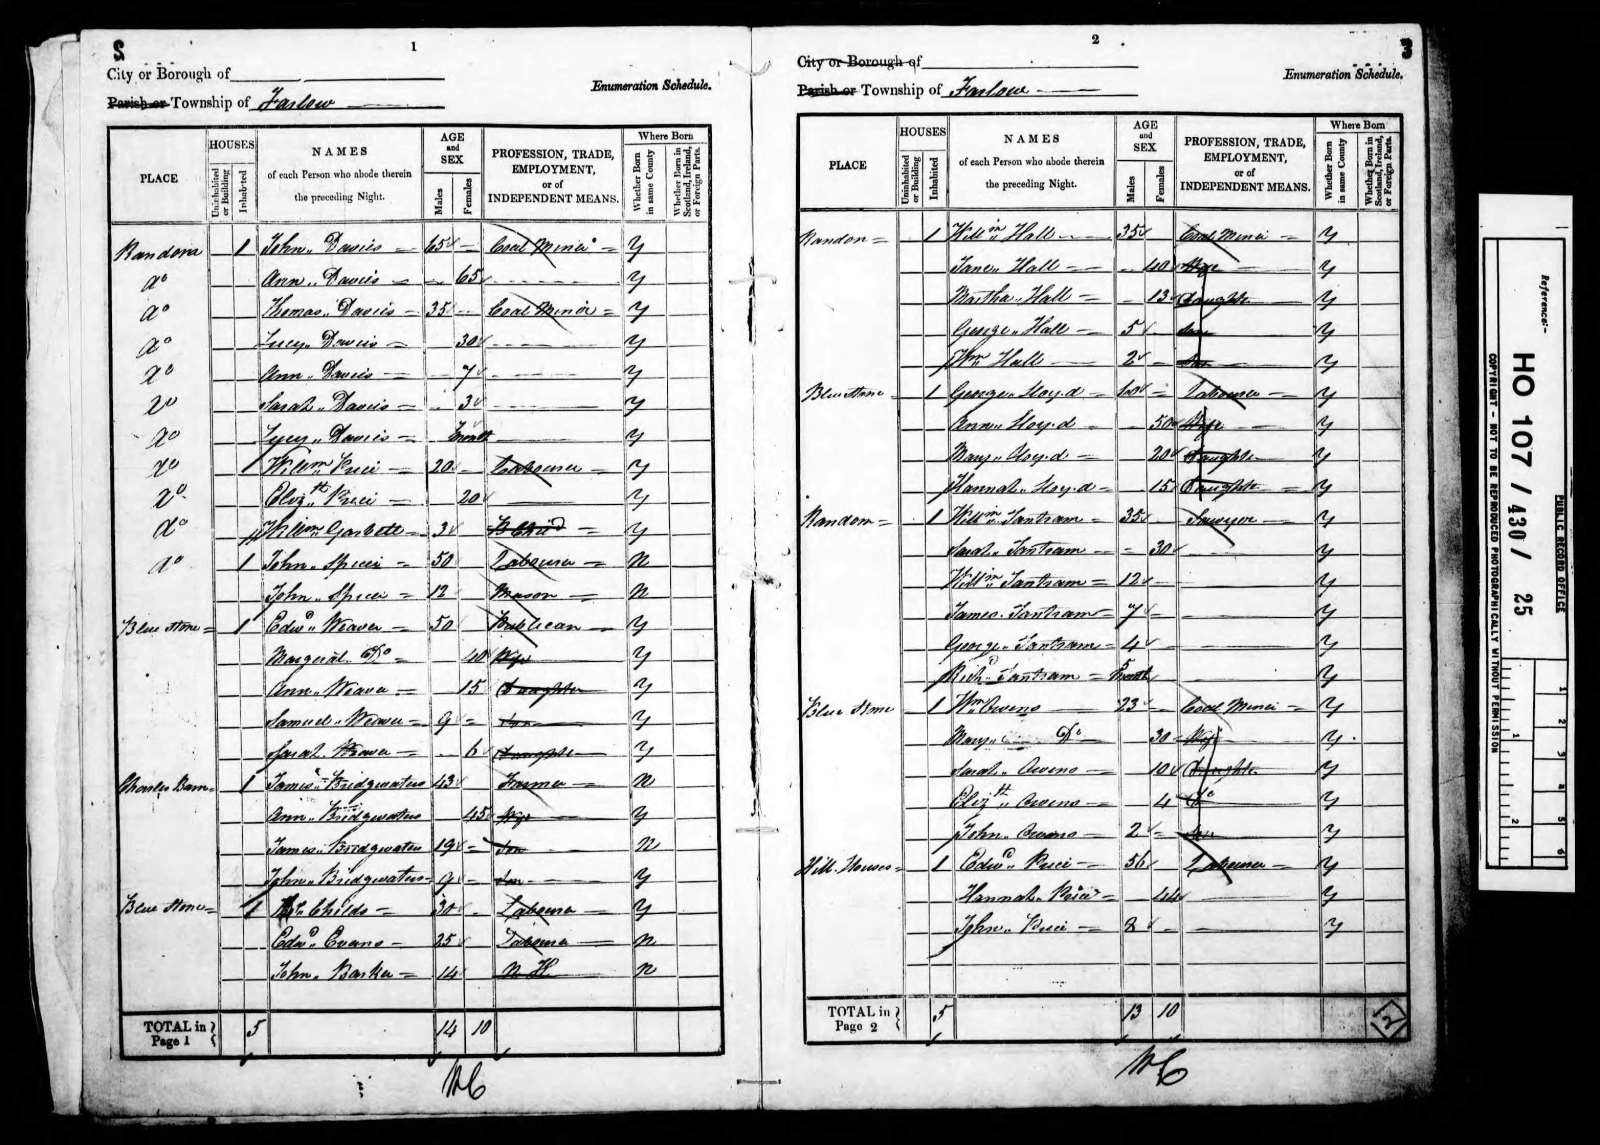 2
1
City or Borough of
Enumeration Schedule.
Parish or Township of Farlow
PLACE
HOUSES
Uninhabited or Building
Inhabited
NAMES
of each Person who abode therein
the preceding Night.
AGE
and
SEX
Males
Females
PROFESSION, TRADE,
EMPLOYMENT,
or of
INDEPENDENT MEANS.
Where Born
Whether Born in same County
Whether Born in Scotland, Ireland, or Foreign Parts.
Random 1 John Davies 65 Coal Miner Y
do Ann Davies 65 Y
do Thomas Davies 35 Coal Miner Y
do Lucy Davies 30 Y
do Ann Davies 7 Y
do Sarah Davies 3 Y
do Lucy Davies Y
do Willm Price 20 Labourer Y
do Elizth Price 20 Y
do Willm Garbett 3 Y
do 1 John Spicer 50 Labourer N
John Spicer 12 Mason N
Blue Stone 1 Edwd Weaver 50 Publican Y
Margerat Do 40 Wife Y
Ann Weaver 15 Daughter Y
Samuel Weaver 9 Son Y
Sarah Weaver 6 Daughter Y
Charles Barn 1 James Bridgewaters 43 Farmer N
Ann Bridgewaters 45 Wife Y
James Bridgewaters 19 Son N
John Bridgewaters 9 Son Y
Blue Stone 1 Childs 30 Labourer Y
Edwd Evans 25 Labourer N
John Barker 14 N
TOTAL in Page 1 5 14 10
WC
3
2
City or Borough of
Enumeration Schedule.
Parish or Township of Farlow
PLACE
HOUSES
Uninhabited or Building
Inhabited
NAMES
of each Person who abode therein
the preceding Night.
AGE
and
SEX
Males
Females
PROFESSION, TRADE,
EMPLOYMENT,
or of
INDEPENDENT MEANS.
Where Born
Whether Born in same County
Whether Born in Scotland, Ireland, or Foreign Parts.
Random 1 Willm Hall 35 Coal Miner Y
Jane Hall 40 Wife Y
Martha Hall 13 Daughter Y
George Hall 5 Son Y
Wm Hall 2 Son Y
Blue Stone 1 George Lloyd 60 Labourer Y
Ann Lloyd 50 Wife Y
Mary Lloyd 20 Daughter Y
Hannah Lloyd 15 Daughter Y
Random 1 Willm Tantram 35 Sawyer Y
Sarah Tantram 30 Y
Willm Tantram 12 Y
James Tantram 7 Y
George Tantram 4 Y
Richd Tantram 5 Month Y
Blue Stone 1 Wm Owens 23 Coal Miner Y
Mary Do 30 Wife Y
Sarah Owens 10 Daughter Y
Elizth Owens 4 Do Y
John Owens 2 Son Y
Hill Houses 1 Edwd Price 56 Labourer Y
Hannah Price 44 Y
John Price 8 Y
TOTAL in Page 2 5 13 10
2
WC
Reference:-
HO 107 / 430 / 25
PUBLIC RECORD OFFICE
COPYRIGHT - NOT TO BE REPRODUCED PHOTOGRAPHICALLY WITHOUT PERMISSION
1 2 3 4 5 6
1 2